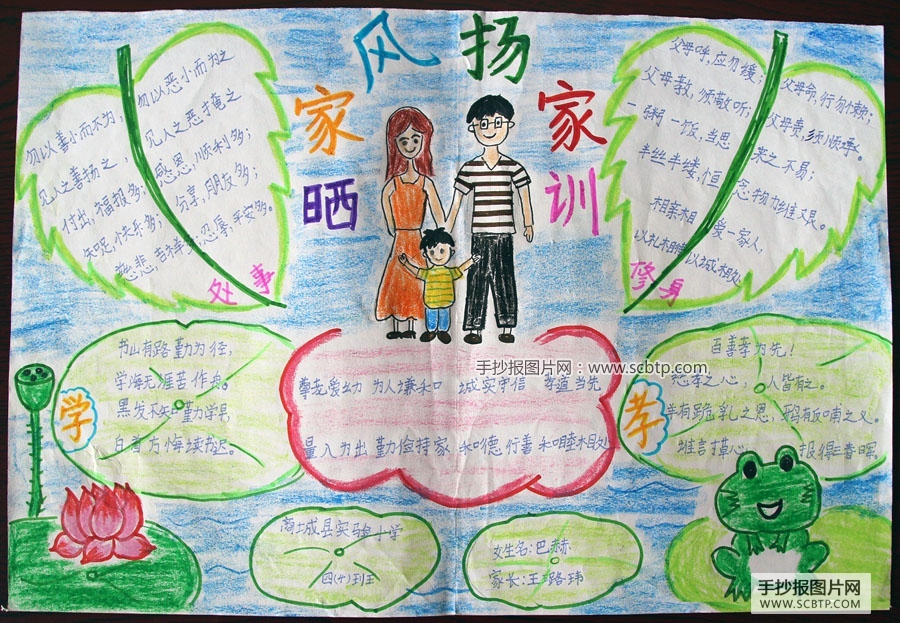 风扬
家家
晒训
勿以恶小而为之
勿以善小而不为,
见人之恶才掩之
见人之善扬之,
感恩,顺利多;
付出,福报多;
分享,朋友多;
知足,快乐多;
忍辱,平安多。
处事
父母呼,应勿缓;
父母教,须敬听;
父母命,行勿懒;
父母责,须顺承。
一粥一饭,当思来之不易;
半丝半缕,恒念物力维艰。
相亲相爱一家人,
以诚相处
修身
书山有路勤为径,
学海无涯苦作舟。
黑发不知勤学早,
白首方悔读书迟。
学
尊老爱幼 为人谦和 诚实守信 孝道当先
量入为出 勤俭持家 和睦相处
手抄报图片网:www.scbtp.com
百善孝为先!
人皆有之。
羊有跪乳之恩,鸦有反哺之义。
报得三春晖。
孝
商城县实验小学
家长:王路玮
手抄报图片网
WWW.SCBTP.COM